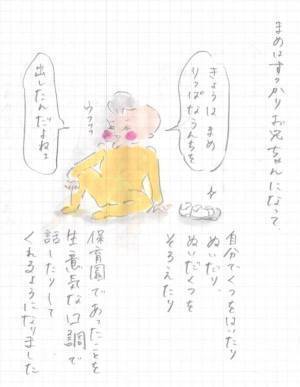 まめはすっかりお兄ちゃんになって
自分でくつをはいたり
ぬいだり、
ぬいだくつを
そろえたり
きょうは まめ
りっぱなうんちを
出したんだよねェ
ウフフ
保育園であったことを
生意気な口調で
話したりして
くれるようになりました